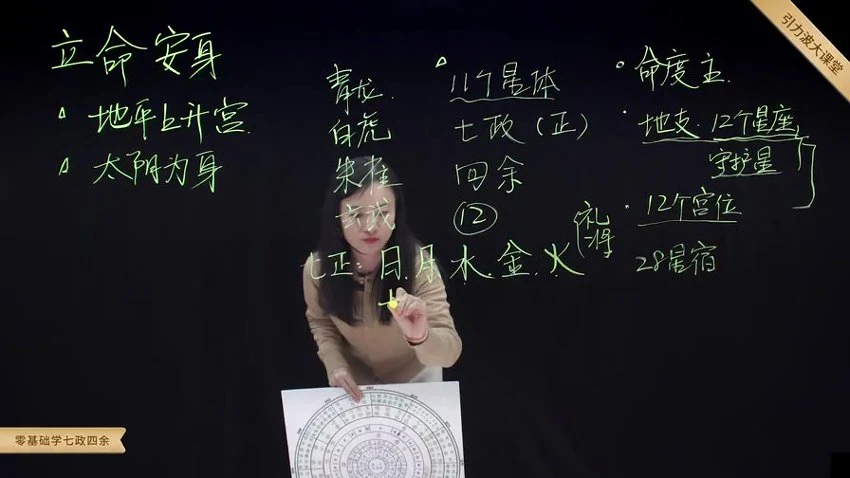 引力波大课堂
立命安身
地平上升宫
太阳为身
青龙
白虎
朱雀
玄武
11个星体
七政（正）
四余
12
七正：日.月.水.金.火
命度主
地支.12个星座
守护星
12个宫位
28星宿
零基础学七政四余